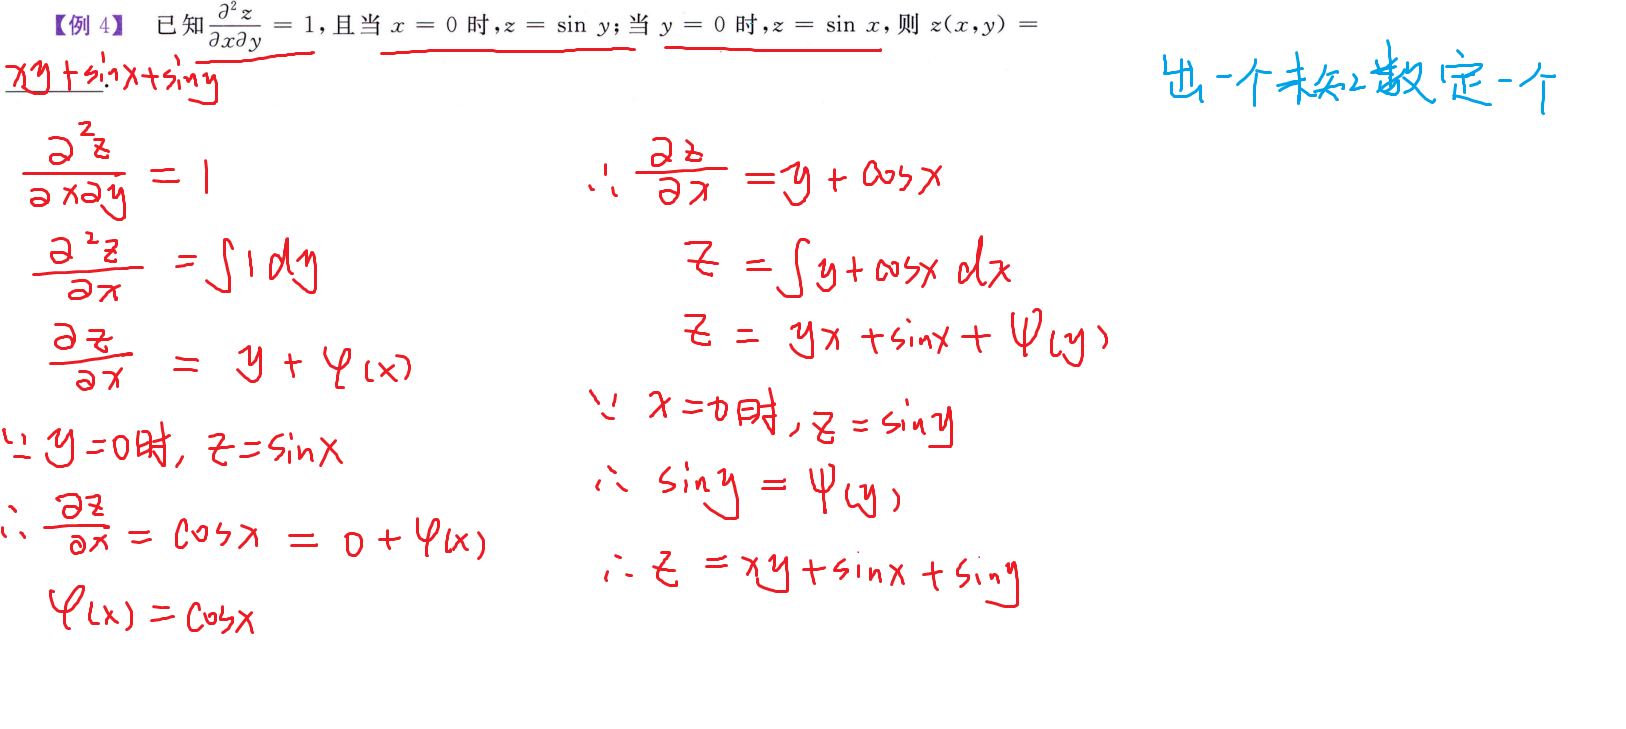 【例 4】 已知∂²z/∂x∂y = 1,且当 x = 0 时,z = sin y;当 y = 0 时,z = sin x,则 z(x,y) =
xy+sinx+siny.
出一个未知数定一个
∂²z/∂x∂y = 1
∂²z/∂x = ∫1dy
∂z/∂x = y + φ(x)
∵ y=0时, z=sinx
∴ ∂z/∂x = cosx = 0 + φ(x)
φ(x) = cosx
∴ ∂z/∂x = y + cosx
z = ∫y+cosx dx
z = yx + sinx + ψ(y)
∵ x=0时, z=siny
∴ siny = ψ(y)
∴ z = xy+sinx+siny